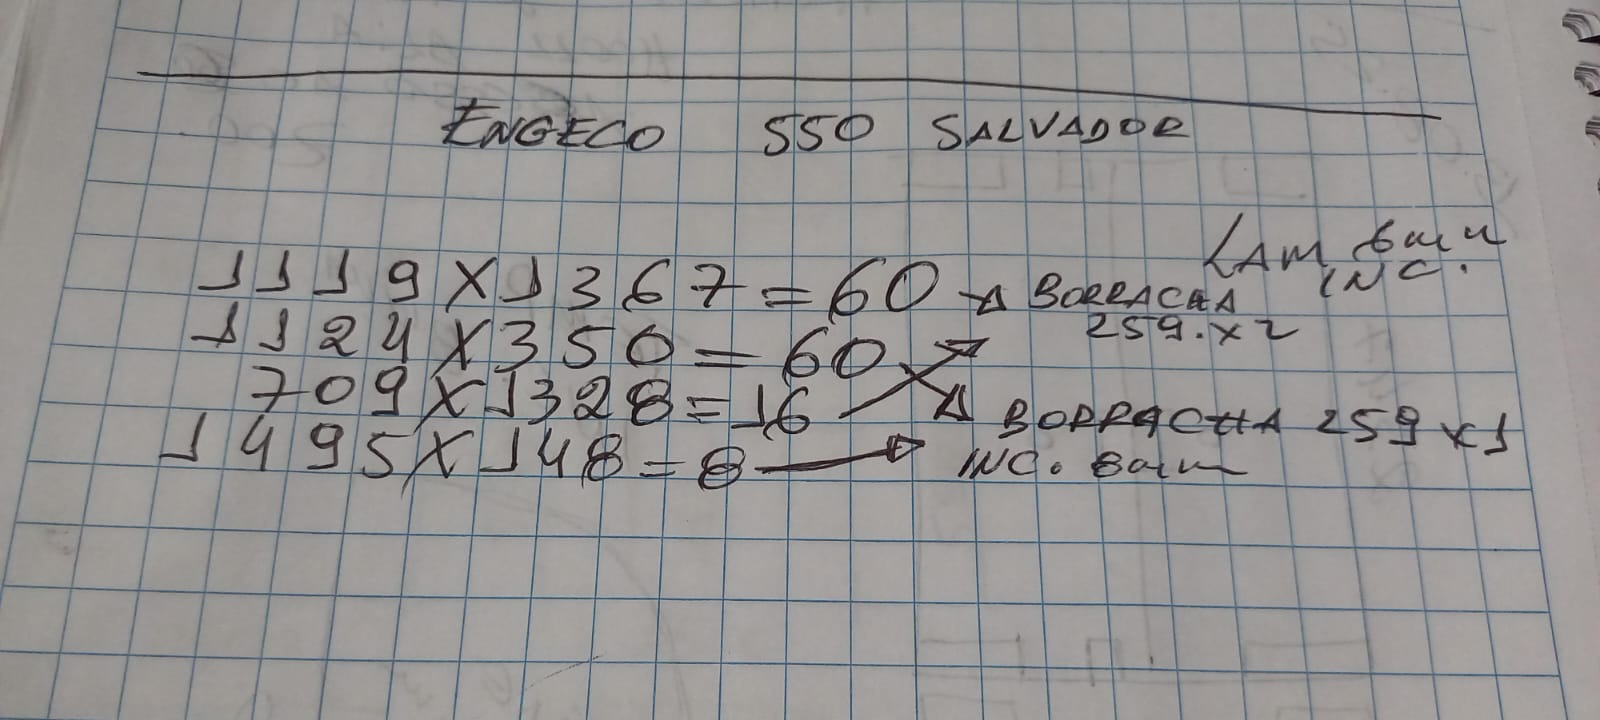 ENGECO 550 SALVADOR
LAM 6mm
INC.
1119 X 1367 = 60 → BORRACHA
259. X 2
1124 X 350 = 60
709 X 1328 = 16
BORRACHA 259 X 1
1495 X 148 = 8 → INC. 8mm